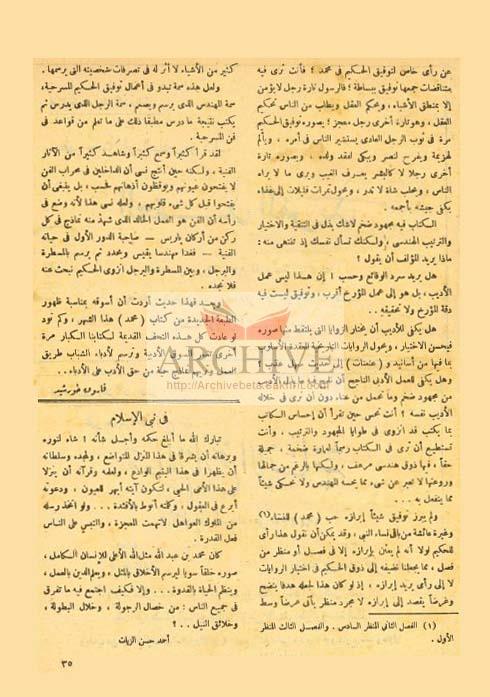 عن رأى خاص لتوفيق الحكيم فى محمد ؟ فأنت ترى فيه
متناقضات جمعها توفيق ببساطة ؛ فالرسول تارة رجل لا يؤمن
إلا بمنطق الأشياء ، ويحكم العقل ويطلب من الناس تحكيم
العقل ، وهو تارة أخرى رجل معجز ؛ يصوره توفيق الحكيم
مرة فى ثوب الرجل العادى يستشير الناس فى أمره ، ويألم
لهزيمة ويفرح لنصر ويبكى لفقد ولده ، ويصوره تارة
أخرى رجلا كالبشر يصرف الغيب ويرى ما لا يراه
الناس ، ويحلب شاة لا تدر ، ويحول تمرات قليلات إلى غذاء
يكفى جيشه بأجمعه .
الكتاب فيه مجهود ضخم لاشك يذل فى التنقية والاختيار
والترتيب الهندسى ، ولكنك تسأل نفسك إذ تنتهى منه :
ماذا يريد المؤلف أن يقول ؟
هل يريد سرد الوقائع وحسب ! إن هذا ليس عمل
الأديب ، بل هو إلى عمل المؤرخ أقرب ، وتوفيق ليست فيه
دقة المؤرخ ولا تحقيقه ..
هل يكفى للأديب أن يختار الزوايا التى يلتقط منها صوره
فيحسن الاختيار ، ويحول الروايات التاريخية المعقدة الأسلوب
بما فيها من أسانيد و ( عنعنات ) إلى
وهل يكفى للعمل الأدبى الناجح أن
من مجهود ضخم وما تحمل من عناء دون أن ترى فى خلاله
الأديب نفسه ؟ أنت تحس حين تقرأ أن إحساس الكاتب
بما يكتب قد انزوى فى طوايا المجهود والترتيب ، وأنت
تستطيع أن ترى فى الكتاب رسماً لعمارة ضخمة ، جميلة
حقاً ، فيها ذوق هندسى مرهف ، ولكنها بالرغم من جمالها
وروعتها لا تعبر عن شىء مما يحسه المهندس ولا تحكى شيئاً
مما ينفعل به ...
ولم يبرز توفيق شيئاً إبرازه حب ( محمد ) للنساء (١)
وغيرة عائشة من باقى نساء النبى ، وقد يمكن أن نقول هذا رأى
للحكيم لولا أنه لم يعتن بإبرازه إلا فى فصل أو منظر من
فصل ، مما يجعلنا نضيفه إلى ذوق الحكيم فى اختيار الروايات
لا إلى رأى يريد إبرازه ، إذ لو كان هذا لجعله هدفا يتضح
وغرضاً يقصد إلى إبرازه لا مجرد منظر يأتى عرضاً وسط
(١) الفصل الثانى المنظر السادس . والفصل الثالث المنظر
الأول .
كثير من الأشياء لا أثر له فى تصرفات شخصيته التى يرسمها .
ولعل هذه سمة تبدو فى أعمال توفيق الحكيم المسرحية ،
سمة المهندس الذى يرسم ويصمم ، سمة الرجل الذى يدرس ثم
يكتب نتيجة ما درس مطبقاً ذلك على ما تعلم من قواعد فى
فن المسرحية .
لقد قرأ كثيراً وسمع كثيراً وشاهد كثيراً من الآثار
الفنية ، ولكنه حين أنتج نسى أن الداخلين فى محراب الفن
لا يفتحون عيونهم ويوقظون أذهانهم فحسب ، بل ينبغى أن
يفتحوا قبل كل شىء قلوبهم ، ولعله نسى هذا لأنه وضع فى
رأسه أن الفن هو العمل الخالد الذى شهد منه نماذج فى كل
ركن من أركان باريس — صاحبة الدور الأول فى حياته
الفنية — فغدا مهندسا يقيس ويحدد ثم يرسم بالمسطرة
والبرجل ، وبين المسطرة والبرجل انزوى الحكيم نبحث عنه
فلا نجده .
وبعد فهذا حديث أردت أن أسوقه بمناسبة ظهور
الطبعة الجديدة من كتاب ( محمد ) هذا الشهر ، وكم نود
لو عادت كل هذه التحف القديمة لكتابنا الكبار مرة
الأدبية وترسم لأدباء الشباب طريق
من حق الأدب على الأدباء ..
فاروق خورشيد
فى نبى الإسلام
تبارك الله ما أبلغ حكمه وأجل شأنه ! شاء لنوره
وبرهانه أن يشرقا فى هذا النزل المتواضع ، ولمجده وسلطانه
أن يظهرا فى هذا اليتيم الوادع ، ولعلمه وقرآنه أن ينزلا
على هذا الأمى الحيى ، لتكون آيته أبهر للعيون ، ودعوته
أبرع فى العقول ، وكلمته أنوط بالأفئدة ... ولو اتخذ رسله
من الملوك العواهل لاتهمت المعجزة ، والتبس على الناس
فعل القدرة ..
كان محمد بن عبد الله مثل الله الأعلى للإنسان الكامل ،
صوره خلقاً سويا ليرسم الأخلاق بالمثل ، ويعلم الدين بالعمل ،
وينظم الحياة بالقدوة ... وإلا فكيف اجتمع فيه ما تفرق
فى جميع الناس : من خصال الرجولة ، وخلال البطولة ،
وخلائق النبل .. ؟
أحمد حسن الزيات
٣٥
ARCHIVE
http://Archivebeta.Sakhrit.com